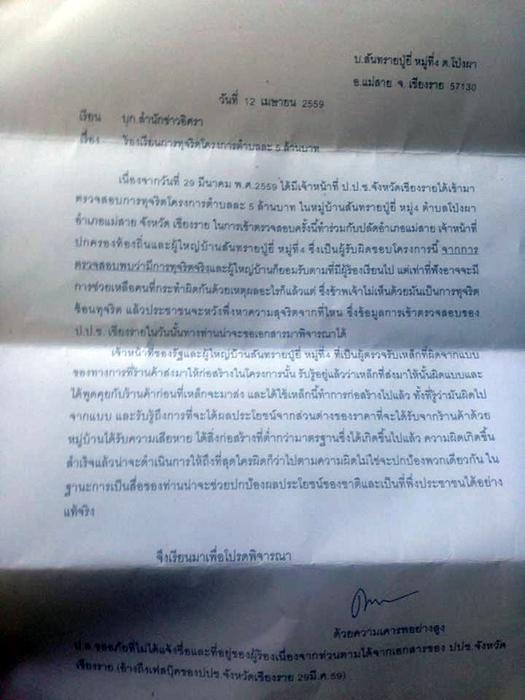 บ.สันทรายปู่ยี่ หมู่ที่4 ต.โป่งผา
อ.แม่สาย จ.เชียงราย 57130
วันที่ 12 เมษายน 2559
เรียน บก.สำนักข่าวอิศรา
เรื่อง ร้องเรียนการทุจริตโครงการตำบลละ 5 ล้านบาท
เนื่องจากวันที่ 29 มีนาคม พ.ศ.2559 ได้มีเจ้าหน้าที่ ป.ป.ช.จังหวัดเชียงรายได้เข้ามา
ตรวจสอบการทุจริตโครงการตำบลละ 5 ล้านบาท ในหมู่บ้านสันทรายปู่ยี่ หมู่4 ตำบลโป่งผา
อำเภอแม่สาย จังหวัด เชียงราย ในการเข้าตรวจสอบครั้งนี้ทำร่วมกับปลัดอำเภอแม่สาย เจ้าหน้าที่
ปกครองท้องถิ่นและผู้ใหญ่บ้านสันทรายปู่ยี่ หมู่ที่4 ซึ่งเป็นผู้รับผิดชอบโครงการนี้ จากการ
ตรวจสอบพบว่ามีการทุจริตจริงและผู้ใหญ่บ้านก็ยอมรับตามที่มีผู้ร้องเรียนไป แต่เท่าที่ฟังอาจจะมี
การช่วยเหลือคนที่กระทำผิดกันด้วยเหตุผลอะไรก็แล้วแต่ ซึ่งข้าพเจ้าไม่เห็นด้วยมันเป็นการทุจริต
ซ้อนทุจริต แล้วประชาชนจะหวังพึ่งหาความสุจริตจากที่ไหน ซึ่งข้อมูลการเข้าตรวจสอบของ
ป.ป.ช. เชียงรายในวันนั้นทางท่านน่าจะขอเอกสารมาพิจารณาได้
เจ้าหน้าที่ของรัฐและผู้ใหญ่บ้านสันทรายปู่ยี่ หมู่ที่4 ที่เป็นผู้ตรวจรับเหล็กที่ผิดจากแบบ
ของทางการที่ร้านค้าส่งมาให้ก่อสร้างในโครงการนั้น รับรู้อยู่แล้วว่าเหล็กที่ส่งมาให้นั้นผิดแบบและ
ได้พูดคุยกับร้านค้าก่อนที่เหล็กจะมาส่ง และได้ใช้เหล็กนี้ทำการก่อสร้างไปแล้ว ทั้งที่รู้ว่ามันผิดไป
จากแบบ และรับรู้ถึงการที่จะได้ผลประโยชน์จากส่วนต่างของราคาที่จะได้รับจากร้านค้าด้วย
หมู่บ้านได้รับความเสียหาย ได้สิ่งก่อสร้างที่ต่ำกว่ามาตรฐานซึ่งได้เกิดขึ้นไปแล้ว ความผิดเกิดขึ้น
สำเร็จแล้วน่าจะดำเนินการให้ถึงที่สุดใครผิดก็ว่าไปตามความผิดไม่ใช่จะปกป้องพวกเดียวกัน ใน
ฐานะการเป็นสื่อของท่านน่าจะช่วยปกป้องผลประโยชน์ของชาติและเป็นที่พึ่งประชาชนได้อย่าง
แท้จริง
จึงเรียนมาเพื่อโปรดพิจารณา
ด้วยความเคารพอย่างสูง
ป.ล.ขออภัยที่ไม่ได้แจ้งชื่อและที่อยู่ของผู้ร้องเนื่องจากท่านตามได้จากเอกสารของ ปปช.จังหวัด
เชียงราย (อ้างถึงเฟสบุ๊คของปปช.จังหวัดเชียงราย 29มี.ค.59)